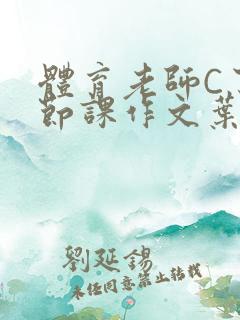 體育老師C
節課作文葉
劉延錫
未經同意禁止轉載